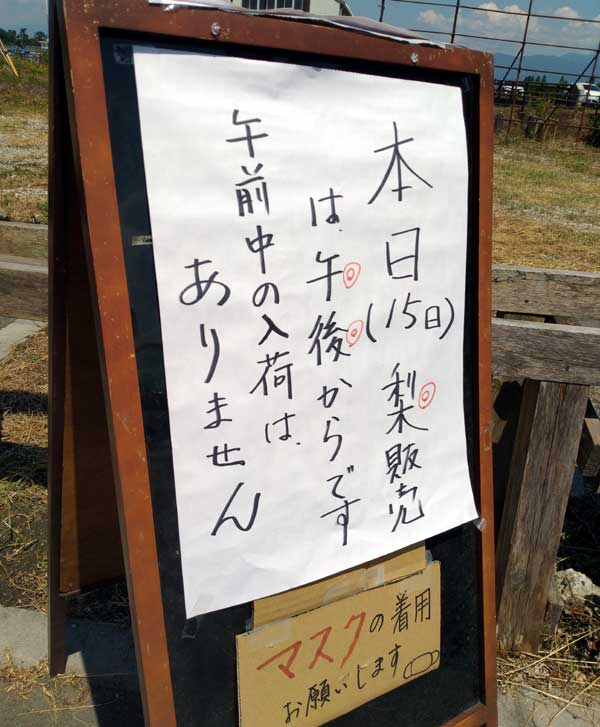 本日(15日)梨販売
は、午後からです
午前中の入荷は、
ありません
マスクの着用
お願いします